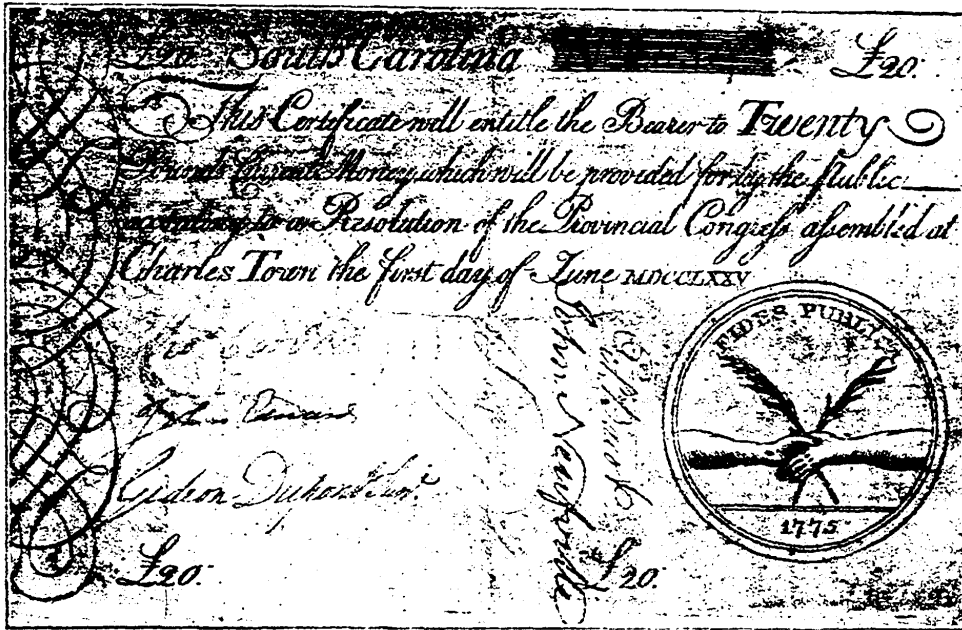 £20 South Carolina £20.
This Certificate will entitle the Bearer to Twenty
Pounds Current Money, which will be provided for by the Public
according to a Resolution of the Provincial Congress assembled at
Charles Town the first day of June MDCCLXXV
FIDES PUBLICA
John Edwards
Gideon Dupont Junr.
John Neufville
1775
£20.
£20.